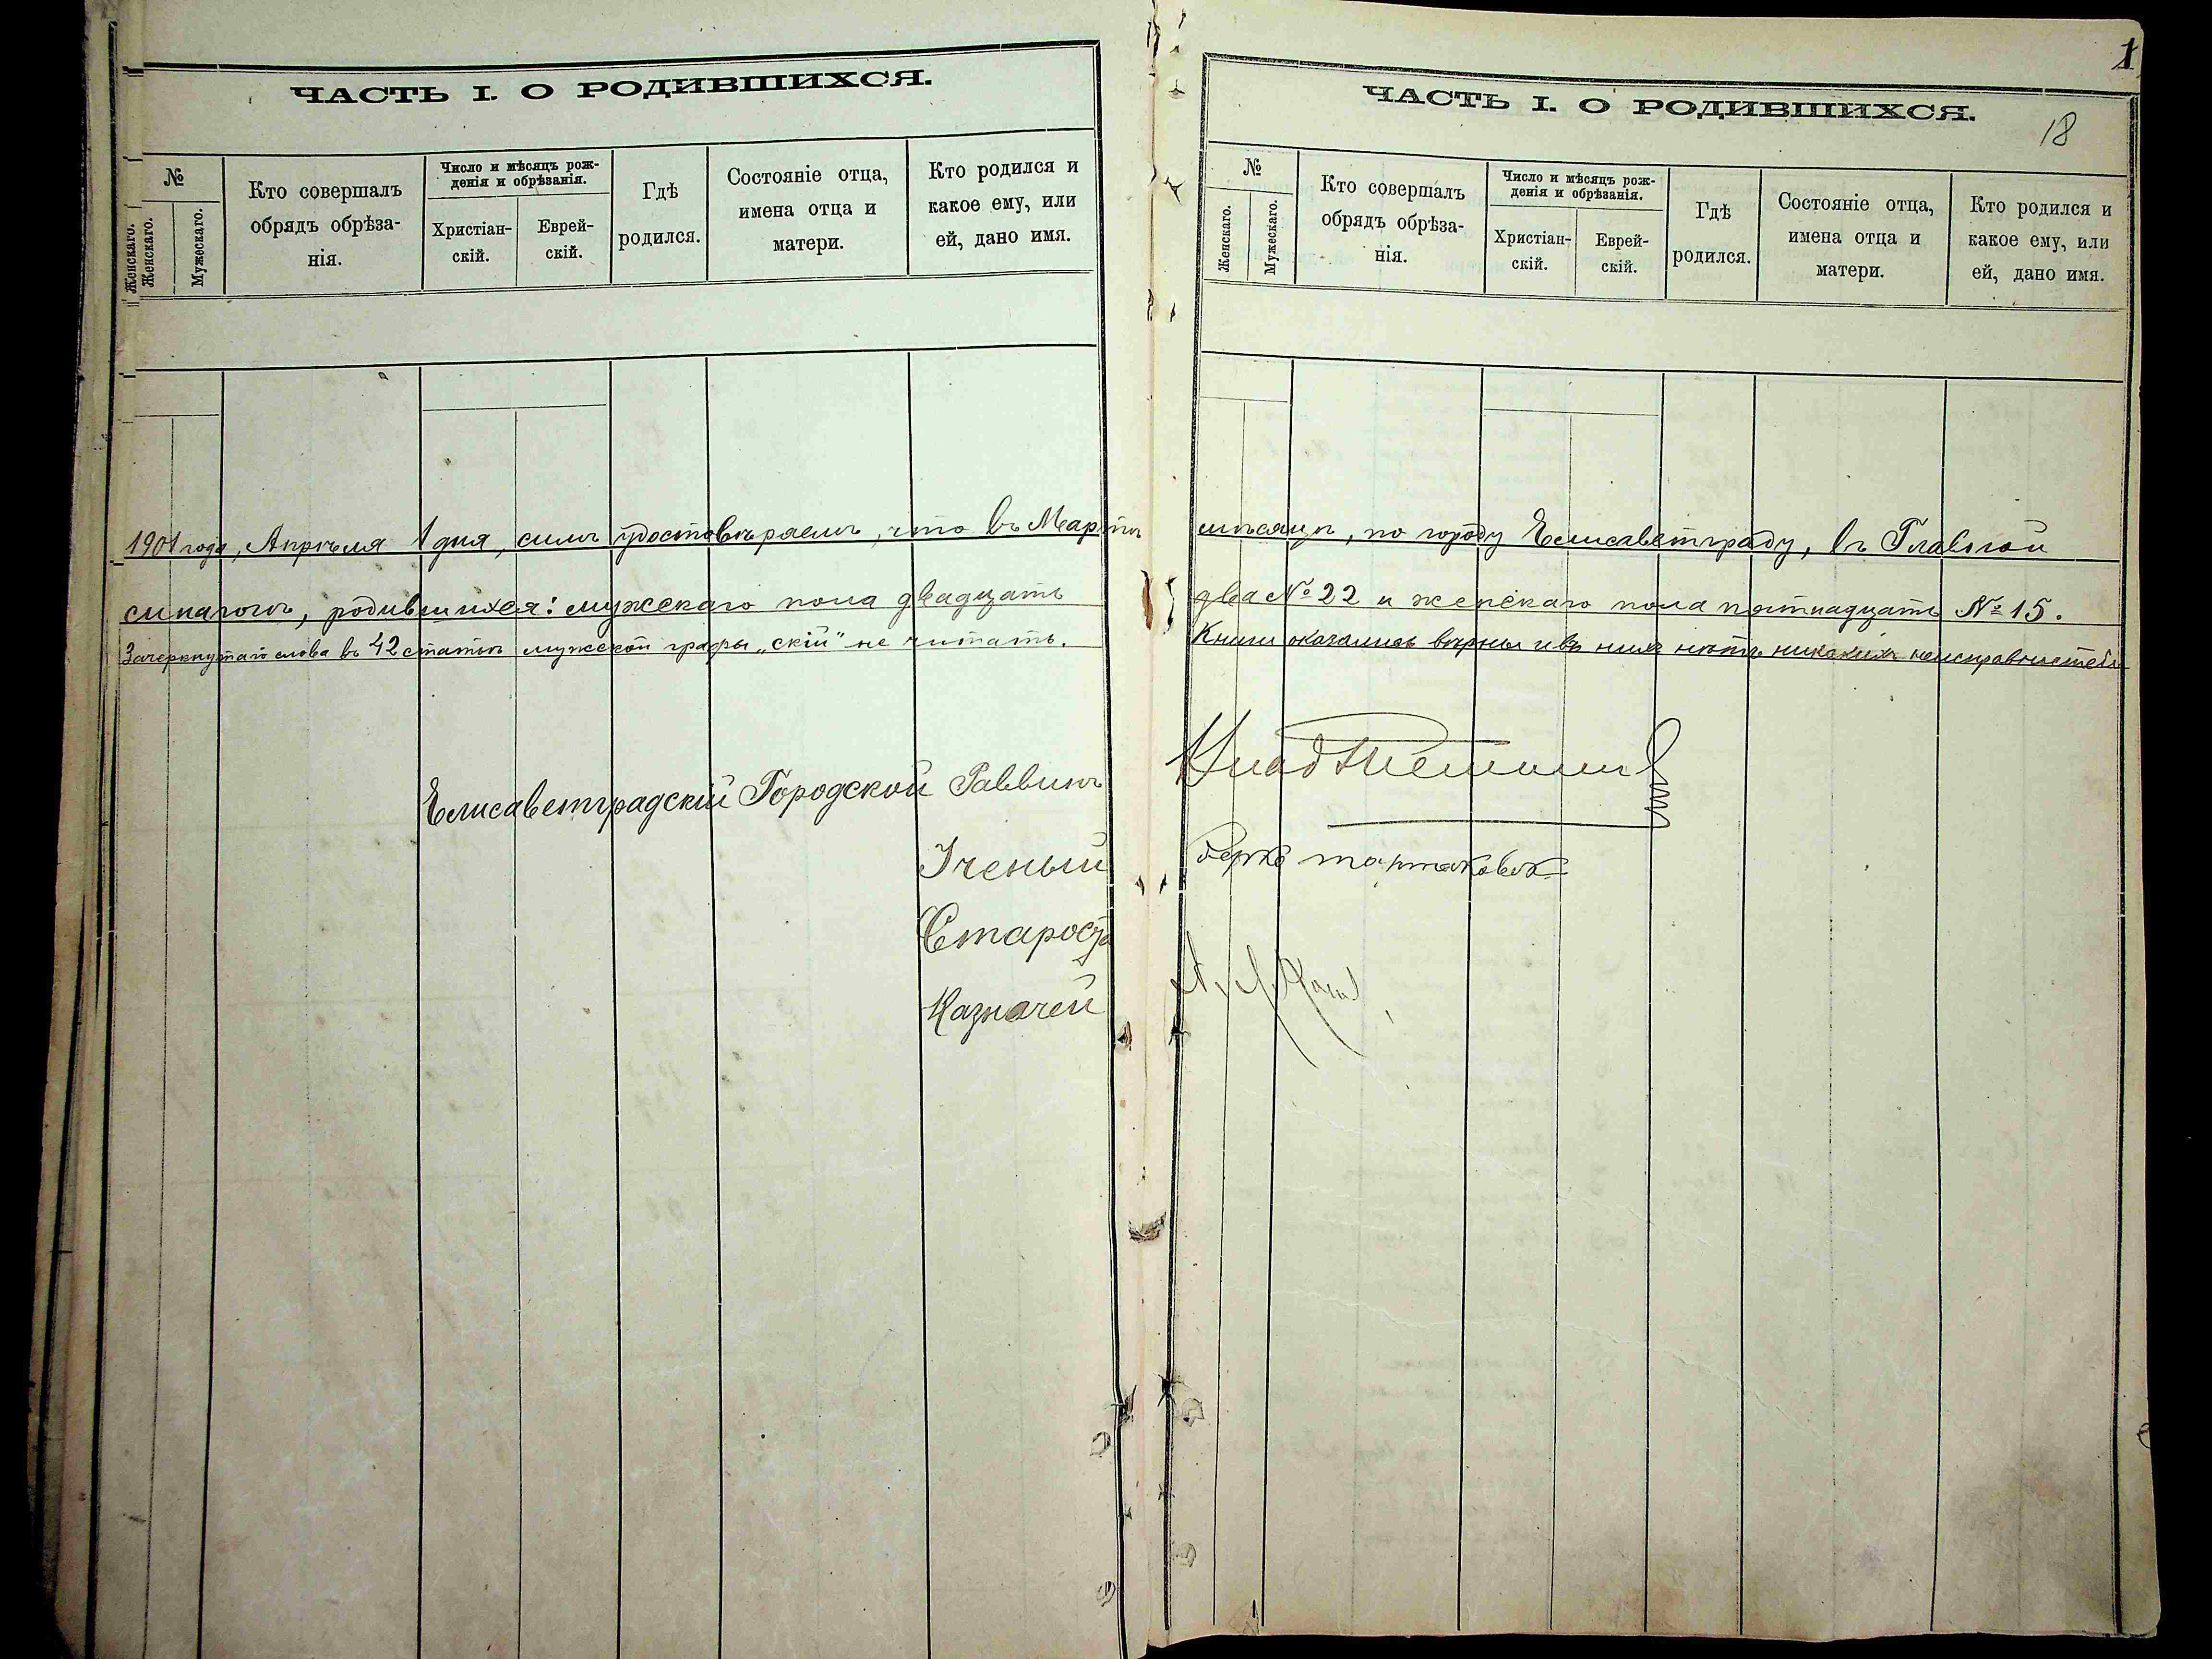 ЧАСТЬ I. О РОДИВШИХСЯ.
№
Женскаго.
Женскаго.
Мужескаго.
Кто совершалъ
обрядъ обрѣза-
нія.
Число и мѣсяцъ рож-
денія и обрѣзанія.
Христіан-
скій.
Еврей-
скій.
Гдѣ
родился.
Состояніе отца,
имена отца и
матери.
Кто родился и
какое ему, или
ей, дано имя.
1901 года, Апрѣля 1 дня, симъ удостовѣряемъ, что въ Мартѣ
синагогѣ, родившихся: мужескаго пола двадцать
Зачеркнутаго слова въ 42 статьѣ мужской графы „скій" не читать.
Елисаветградскій Городской Раввинъ
Ученый
Староста
Казначей
1
ЧАСТЬ I. О РОДИВШИХСЯ.
18
№
Женскаго.
Мужескаго.
Кто совершалъ
обрядъ обрѣза-
нія.
Число и мѣсяцъ рож-
денія и обрѣзанія.
Христіан-
скій.
Еврей-
скій.
Гдѣ
родился.
Состояніе отца,
имена отца и
матери.
Кто родился и
какое ему, или
ей, дано имя.
мѣсяцѣ, по городу Елисаветграду, въ Главной
два № 22 и женскаго пола пятнадцать № 15.
Книги оказались вѣрны и въ нихъ нѣтъ никакихъ неисправностей